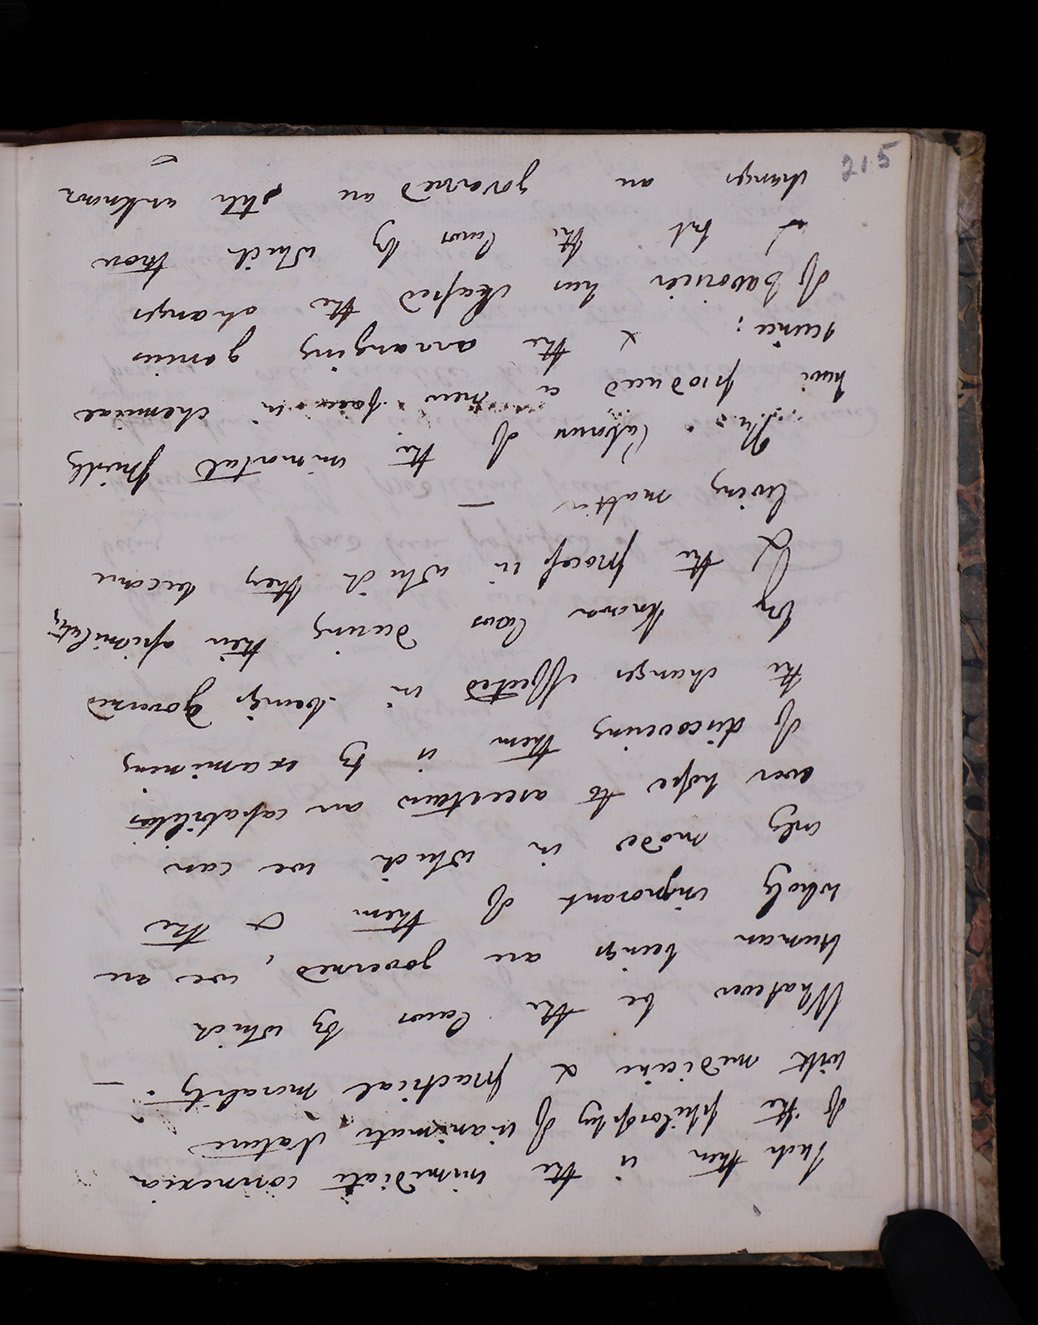 Such then is the immediate connexion
of the philosophy of inanimate Nature
with medicine & practical morality. —
Whatever be the laws by which
human beings are governed, we are
wholy ignorant of them & the
only modes in which we can
ever hope to ascertain an capabilities
of discovering them is by examining
the changes effected in beings governed
by known laws during their assimilation,
& the process in which they become
living matter —
The labours of the immortal Priestly
have produced a new face in chemical
science: & the arranging genius
of Lavoisier has the changes
but the laws by which these
changes are governed are still unknown
215